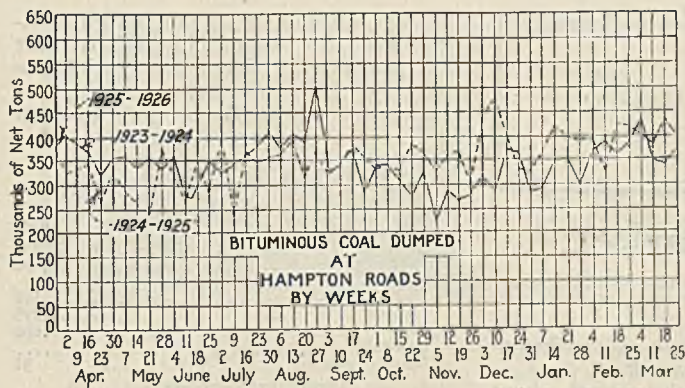 Thousands of Net Tons
650
600
550
500
450
400
350
300
250
200
150
100
50
0
1925-1926
1923-1924
1924-1925
BITUMINOUS COAL DUMPED
AT
HAMPTON ROADS
BY WEEKS
2 16 30 14 28 11 25 9 23 6 20 3 17 1 15 29 12 26 10 24 7 21 4 18 4 18
9 23 7 21 4 18 2 16 30 13 27 10 24 8 22 5 19 3 17 31 14 28 11 25 11 25
Apr. May June July Aug. Sept. Oct. Nov. Dec. Jan. Feb. Mar